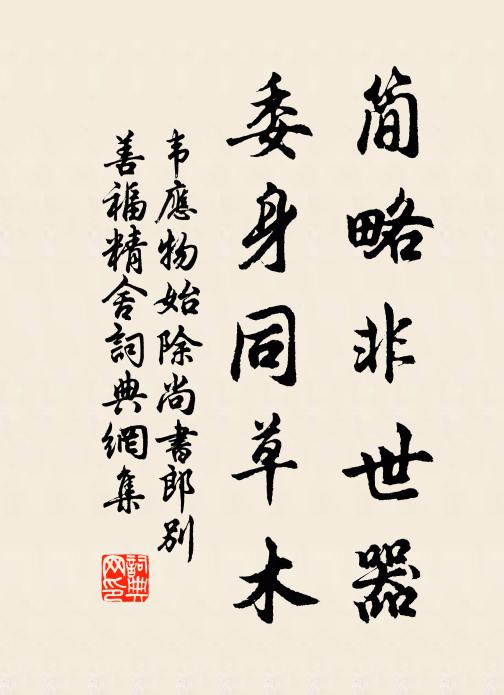 简略非世器
委身同草木
韦應物始除尚書郎别
善福精舍詞典網集
詞典
网印